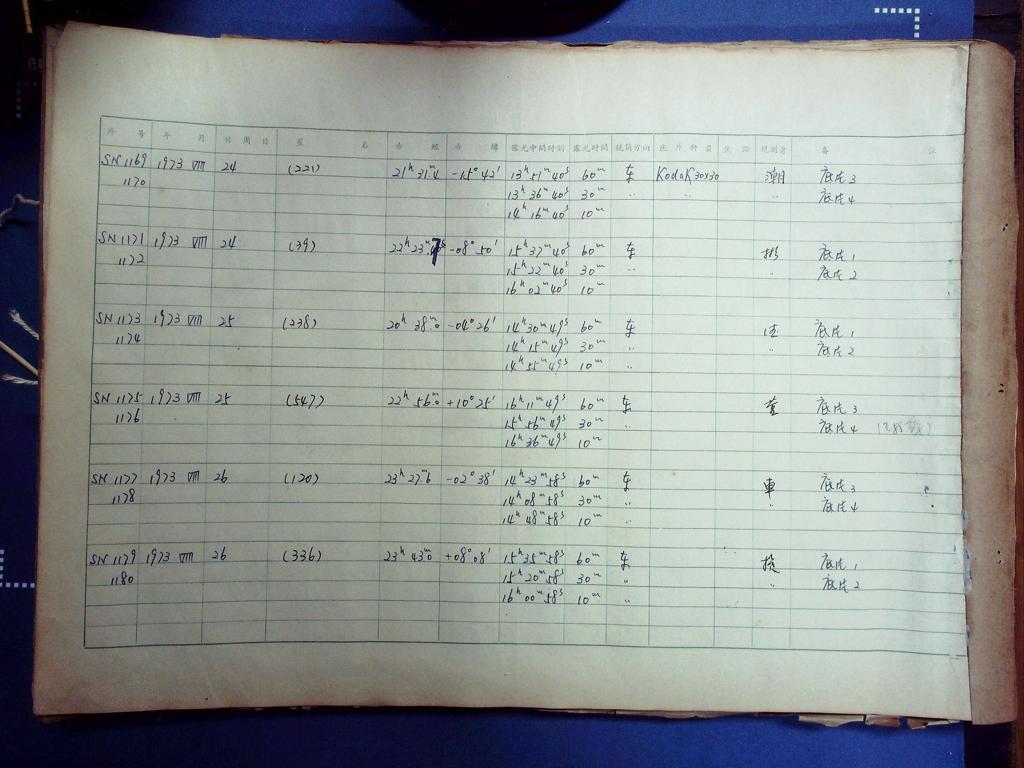 序 号 年 月 日 周 日 星 名 赤 經 赤 緯 露光中間时刻 露光时间 鏡筒方向 底 片 种 量 焦 距 观測者 备 註
SN 1169 1973 VIII 24 (221) 21ʰ 31ᵐ.4 -15° 42′ 13ʰ 51ᵐ 40ˢ 60ᵐ 东 Kodak 30x30 潮 底片3
1170 13ʰ 36ᵐ 40ˢ 30ᵐ 〃 〃 底片4
14ʰ 16ᵐ 40ˢ 10ᵐ
SN 1171 1973 VIII 24 (39) 22ʰ 23ᵐ -08° 50′ 15ʰ 37ᵐ 40ˢ 60ᵐ 东 彬 底片1
1172 15ʰ 22ᵐ 40ˢ 30ᵐ 〃 〃 底片2
16ʰ 02ᵐ 40ˢ 10ᵐ
SN 1173 1973 VIII 25 (238) 20ʰ 38ᵐ.0 -04° 26′ 14ʰ 30ᵐ 49ˢ 60ᵐ 东 底片1
1174 14ʰ 15ᵐ 49ˢ 30ᵐ 〃 〃 底片2
14ʰ 55ᵐ 49ˢ 10ᵐ 〃
SN 1175 1973 VIII 25 (547) 22ʰ 56ᵐ.0 +10° 25′ 16ʰ 11ᵐ 49ˢ 60ᵐ 东 底片3
1176 15ʰ 56ᵐ 49ˢ 30ᵐ 〃 底片4
16ʰ 36ᵐ 49ˢ 10ᵐ
SN 1177 1973 VIII 26 (120) 23ʰ 27ᵐ.6 -02° 38′ 14ʰ 23ᵐ 58ˢ 60ᵐ 东 車 底片3
1178 14ʰ 08ᵐ 58ˢ 30ᵐ 〃 〃 底片4
14ʰ 48ᵐ 58ˢ 10ᵐ 〃
SN 1179 1973 VIII 26 (336) 23ʰ 43ᵐ.0 +08° 08′ 15ʰ 35ᵐ 58ˢ 60ᵐ 东 底片1
1180 15ʰ 20ᵐ 58ˢ 30ᵐ 〃 〃 底片2
16ʰ 00ᵐ 58ˢ 10ᵐ 〃